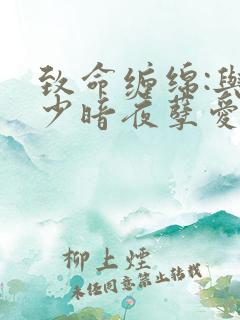 致命缠绵:與
少暗夜孽爱
柳上煙
未经同意禁止转载